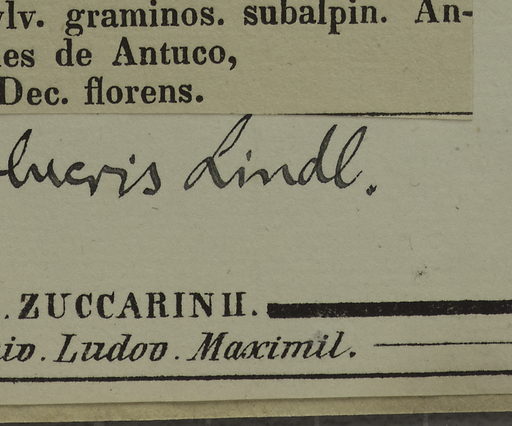 ylv. graminos. subalpin. An-
les de Antuco,
Dec. florens.
lucris Lindl.
. ZUCCARINII.
niv. Ludov. Maximil.